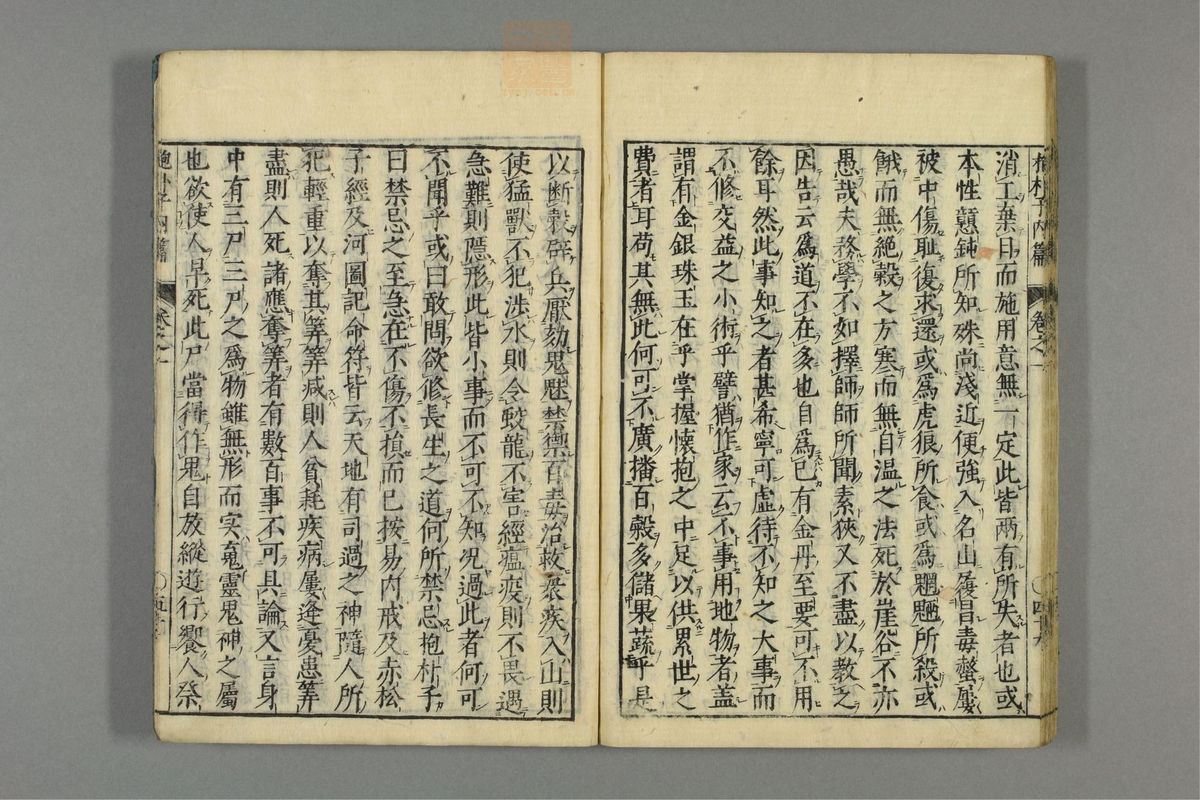 抱朴子内篇 卷之一 〇四十九
消工棄日而施用意無一定此皆兩有所失者也或
本性戇鈍所知殊尚淺近便強入名山履冒毒螫屢
被中傷耻復求還或爲虎狼所食或爲魍魎所殺或
餓而無絶穀之方寒而無自温之法死於崖谷不亦
愚哉夫務學不如擇師師所聞素狹又不盡以教之
因告云爲道不在多也自爲已有金丹至要可不用
餘耳然此事知之者甚希寧可虚待不知之大事而
不修交益之小術乎譬猶作家云不事用地物者盖
謂有金銀珠玉在乎掌握懷抱之中足以供累世之
費者耳苟其無此何可不廣播百穀多儲果蔬乎是
以断穀辟兵厭劾鬼魅禁御百毒治救衆疾入山則
使猛獸不犯渉水則令蛟龍不害經瘟疫則不畏遇
急難則隱形此皆小事而不可不知况過此者何可
不聞乎或曰敢問欲修長生之道何所禁忌抱朴子
曰禁忌之至急在不傷不損而已按易内戒及赤松
子經及河圖記命符皆云天地有司過之神隨人所
犯輕重以奪其筭筭减則人貧耗疾病屢逢憂患筭
盡則人死諸應奪筭者有數百事不可具論又言身
中有三尸三尸之爲物雖無形而实䰟靈鬼神之屬
也欲使人早死此尸當得作鬼自放縱遊行饗人祭
抱朴子内篇